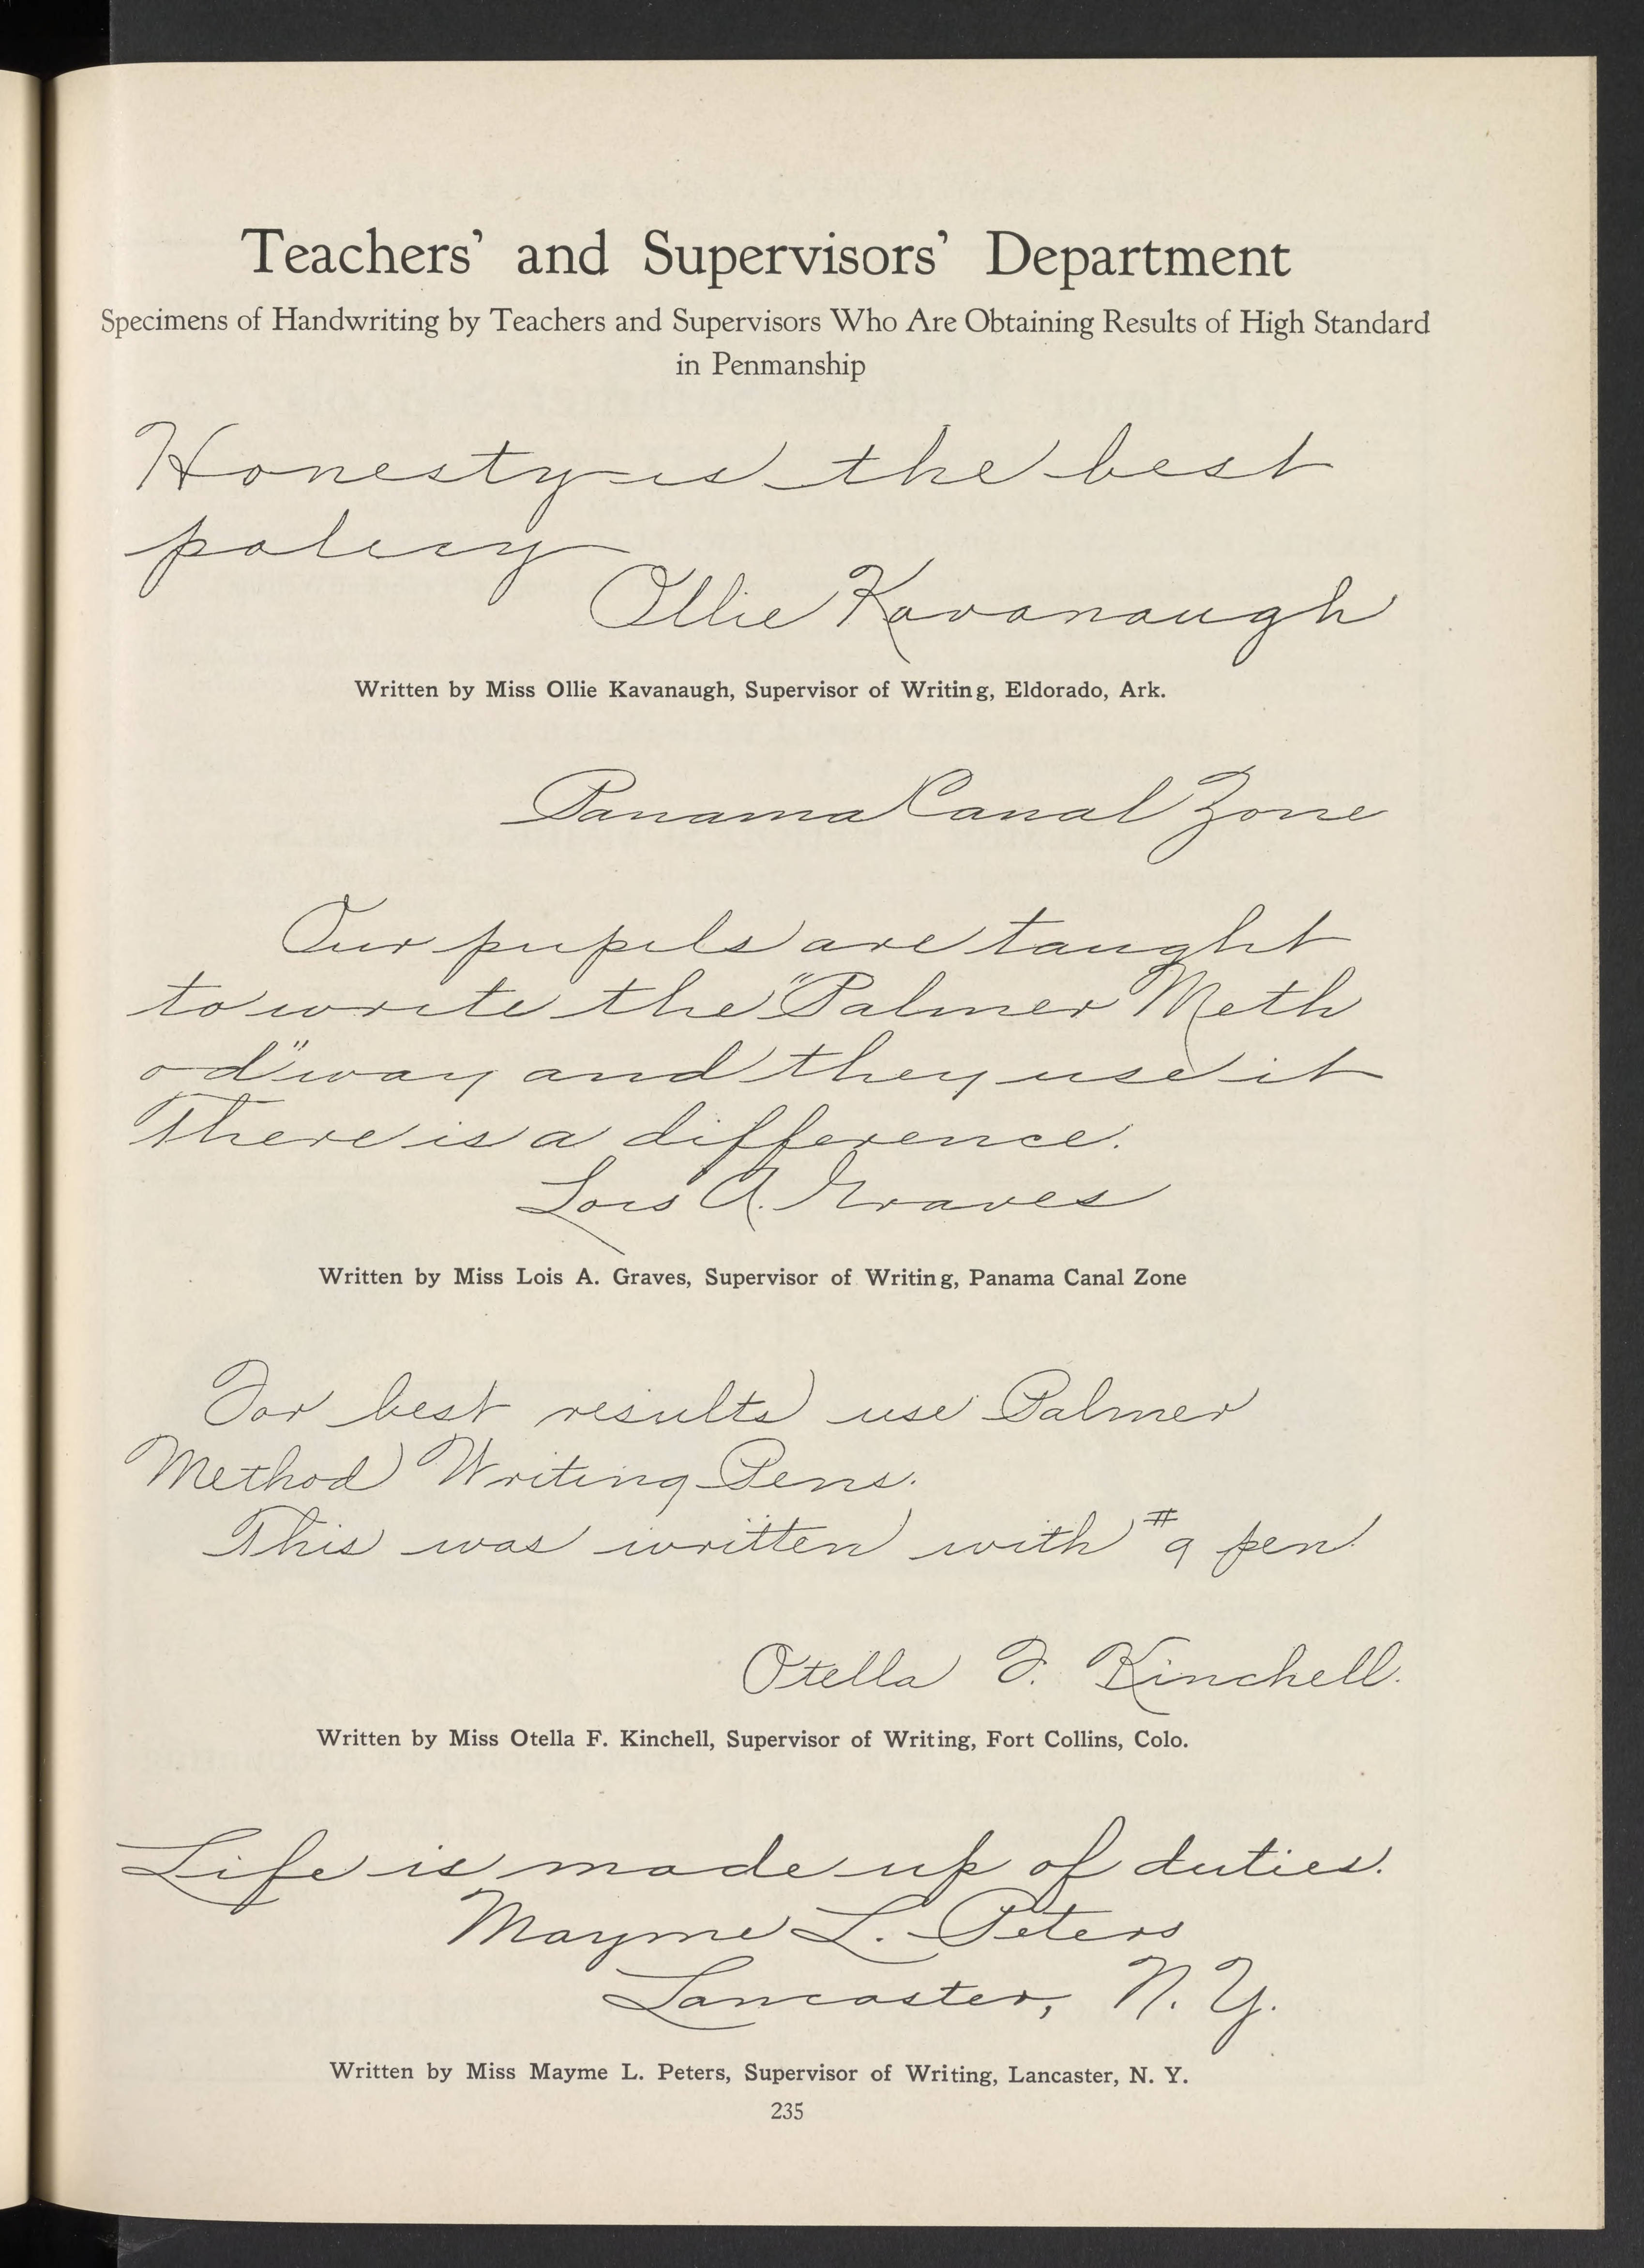 Teachers' and Supervisors' Department
Specimens of Handwriting by Teachers and Supervisors Who Are Obtaining Results of High Standard
in Penmanship
Honesty is the best
policy
Ollie Kavanaugh
Written by Miss Ollie Kavanaugh, Supervisor of Writing, Eldorado, Ark.
Panama Canal Zone
Our pupils are taught
to write the "Palmer Meth
od" way and they use it
There is a difference.
Lois A. Graves
Written by Miss Lois A. Graves, Supervisor of Writing, Panama Canal Zone
For best results use Palmer
Method Writing Pens.
This was written with #9 pen.
Otella F. Kinchell.
Written by Miss Otella F. Kinchell, Supervisor of Writing, Fort Collins, Colo.
Life is made up of duties.
Mayme L. Peters
Lancaster, N. Y.
Written by Miss Mayme L. Peters, Supervisor of Writing, Lancaster, N. Y.
235